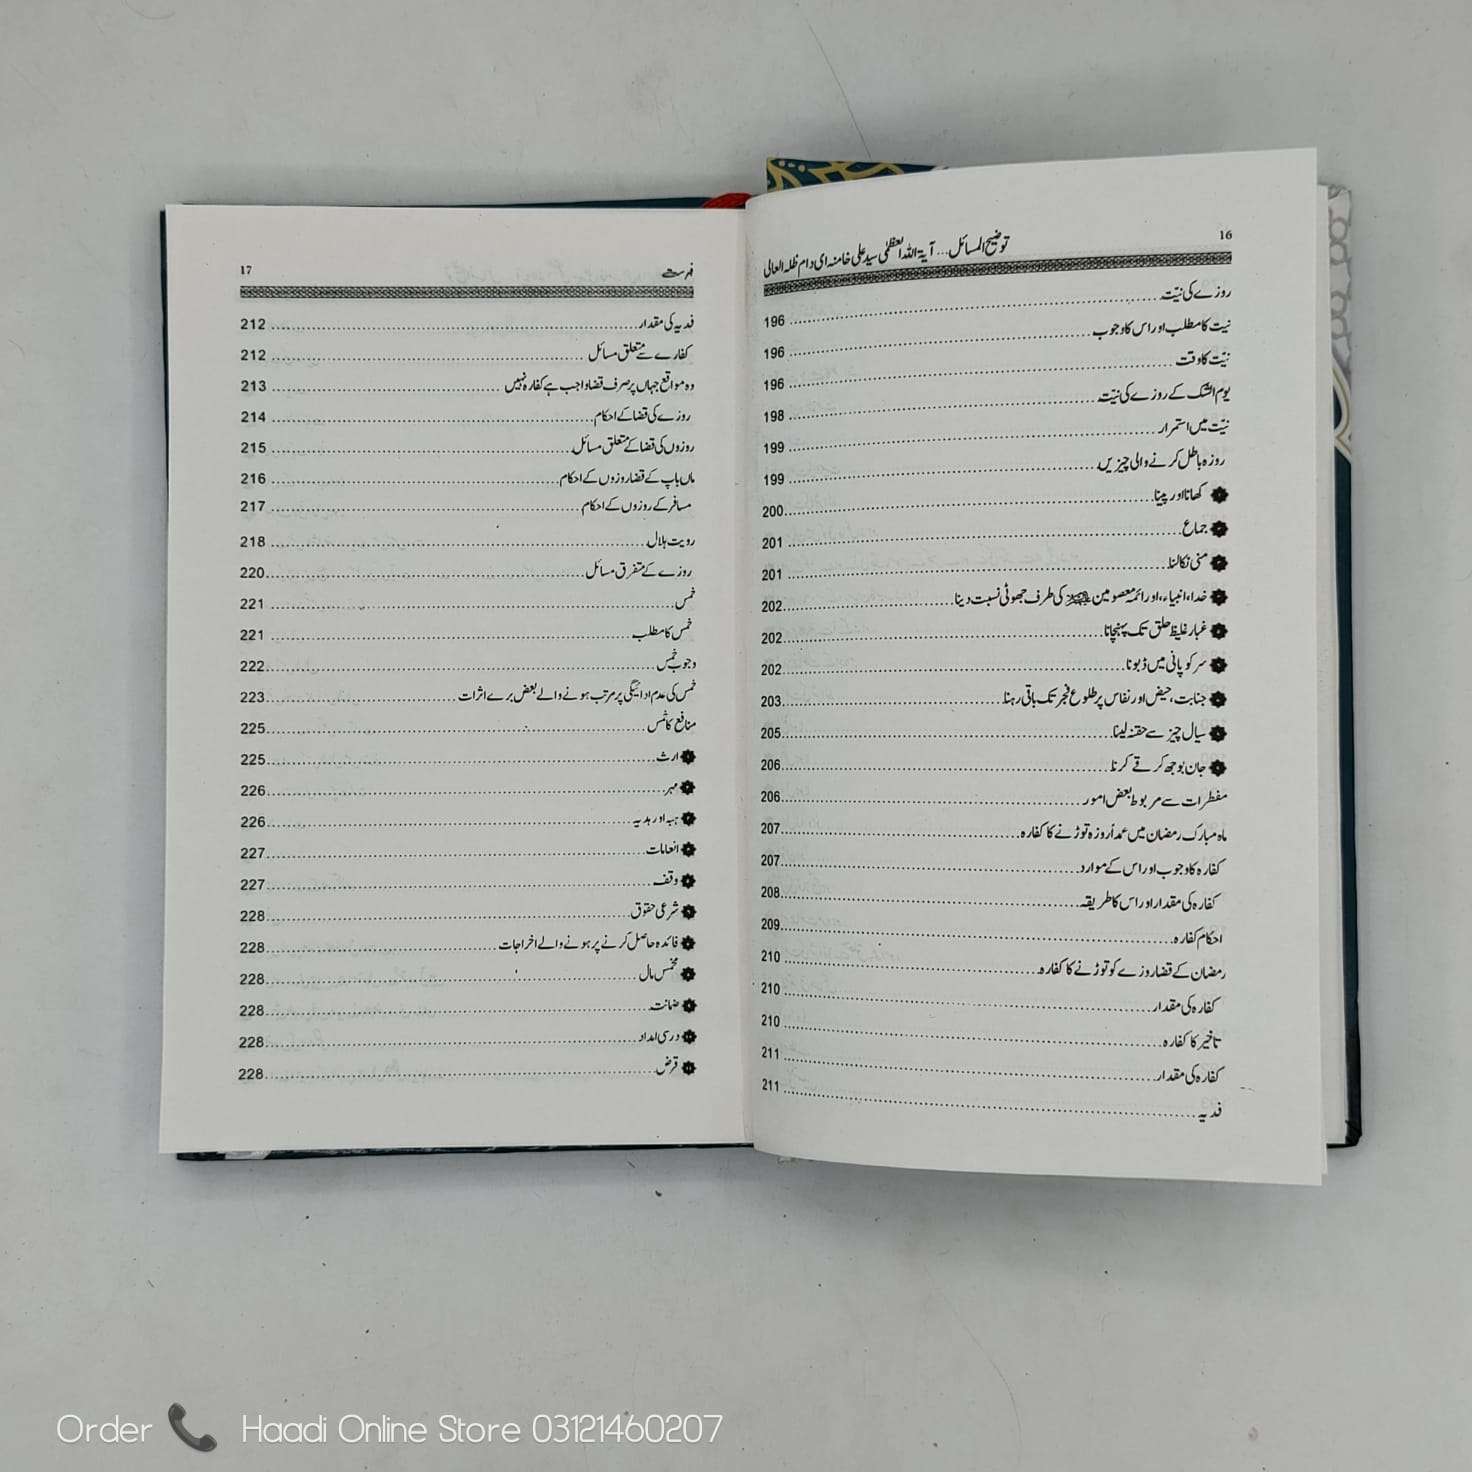 16
توضیح المسائل... آیۃ اللہ العظمٰی سید علی خامنہ ای دام ظلہ العالی
روزے کی نیّت ........ 196
نیت کا مطلب اور اس کا وجوب ........ 196
نیّت کا وقت ........ 196
یوم الشک کے روزے کی نیّت ........ 198
نیّت میں استمرار ........ 199
روزہ باطل کرنے والی چیزیں ........ 199
کھانا اور پینا ........ 200
جماع ........ 201
منی نکالنا ........ 201
خدا، انبیاء، اور ائمہ معصومین کی طرف جھوٹی نسبت دینا ........ 202
غبار غلیظ حلق تک پہنچانا ........ 202
سر کو پانی میں ڈبونا ........ 202
جنابت، حیض اور نفاس پر طلوع فجر تک باقی رہنا ........ 203
سیال چیز سے حقنہ لینا ........ 205
جان بوجھ کر قے کرنا ........ 206
مفطرات سے مربوط بعض امور ........ 206
ماہ مبارک رمضان میں عمداً روزہ توڑنے کا کفارہ ........ 207
کفارہ کا وجوب اور اس کے موارد ........ 207
کفارہ کی مقدار اور اس کا طریقہ ........ 208
احکام کفارہ ........ 209
رمضان کے قضا روزے کو توڑنے کا کفارہ ........ 210
کفارہ کی مقدار ........ 210
تاخیر کا کفارہ ........ 210
کفارہ کی مقدار ........ 211
فدیہ ........ 211
فہرست
17
فدیہ کی مقدار ........ 212
کفارے سے متعلق مسائل ........ 212
وہ مواقع جہاں پر صرف قضا واجب ہے کفارہ نہیں ........ 213
روزے کی قضا کے احکام ........ 214
روزوں کی قضا کے متعلق مسائل ........ 215
ماں باپ کے قضا روزوں کے احکام ........ 216
مسافر کے روزوں کے احکام ........ 217
رویت ہلال ........ 218
روزے کے متفرق مسائل ........ 220
خمس ........ 221
خمس کا مطلب ........ 221
وجوب خمس ........ 222
خمس کی عدم ادائیگی پر مرتب ہونے والے بعض برے اثرات ........ 223
منافع کا خمس ........ 225
ارث ........ 225
مہر ........ 226
ہبہ اور ہدیہ ........ 226
انعامات ........ 227
وقف ........ 227
شرعی حقوق ........ 228
فائدہ حاصل کرنے پر ہونے والے اخراجات ........ 228
مخمس مال ........ 228
ضمانت ........ 228
درسی امداد ........ 228
قرض ........ 228
Order Haadi Online Store 03121460207